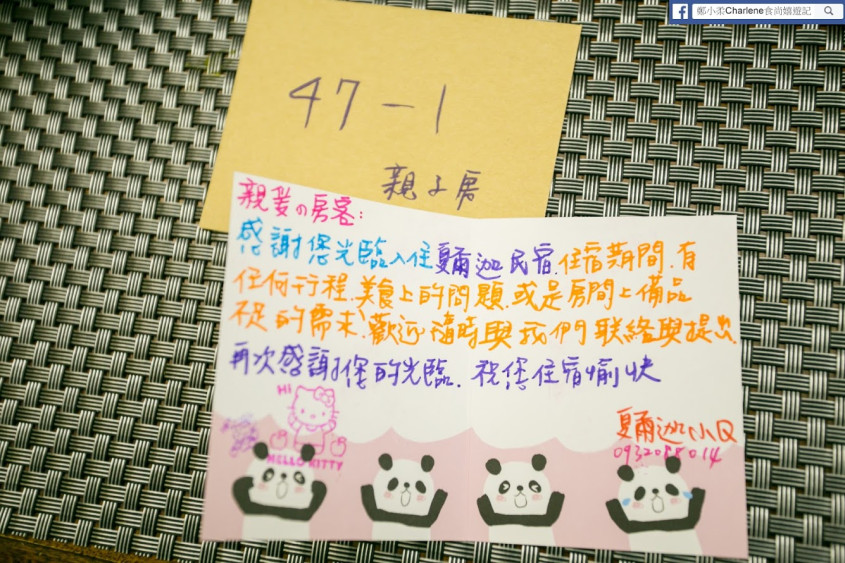 鄭小柔Charlene食尚嬉遊記
47-1
親子房
親愛の房客:
感謝您光臨入住夏爾迦民宿.住宿期間.有
任何行程、美食上的問題.或是房間上備品
不足的需求.歡迎隨時與我們聯絡與提出.
再次感謝您的光臨.祝您住宿愉快
HI
HELLO KITTY
夏爾迦小Q
0932088014